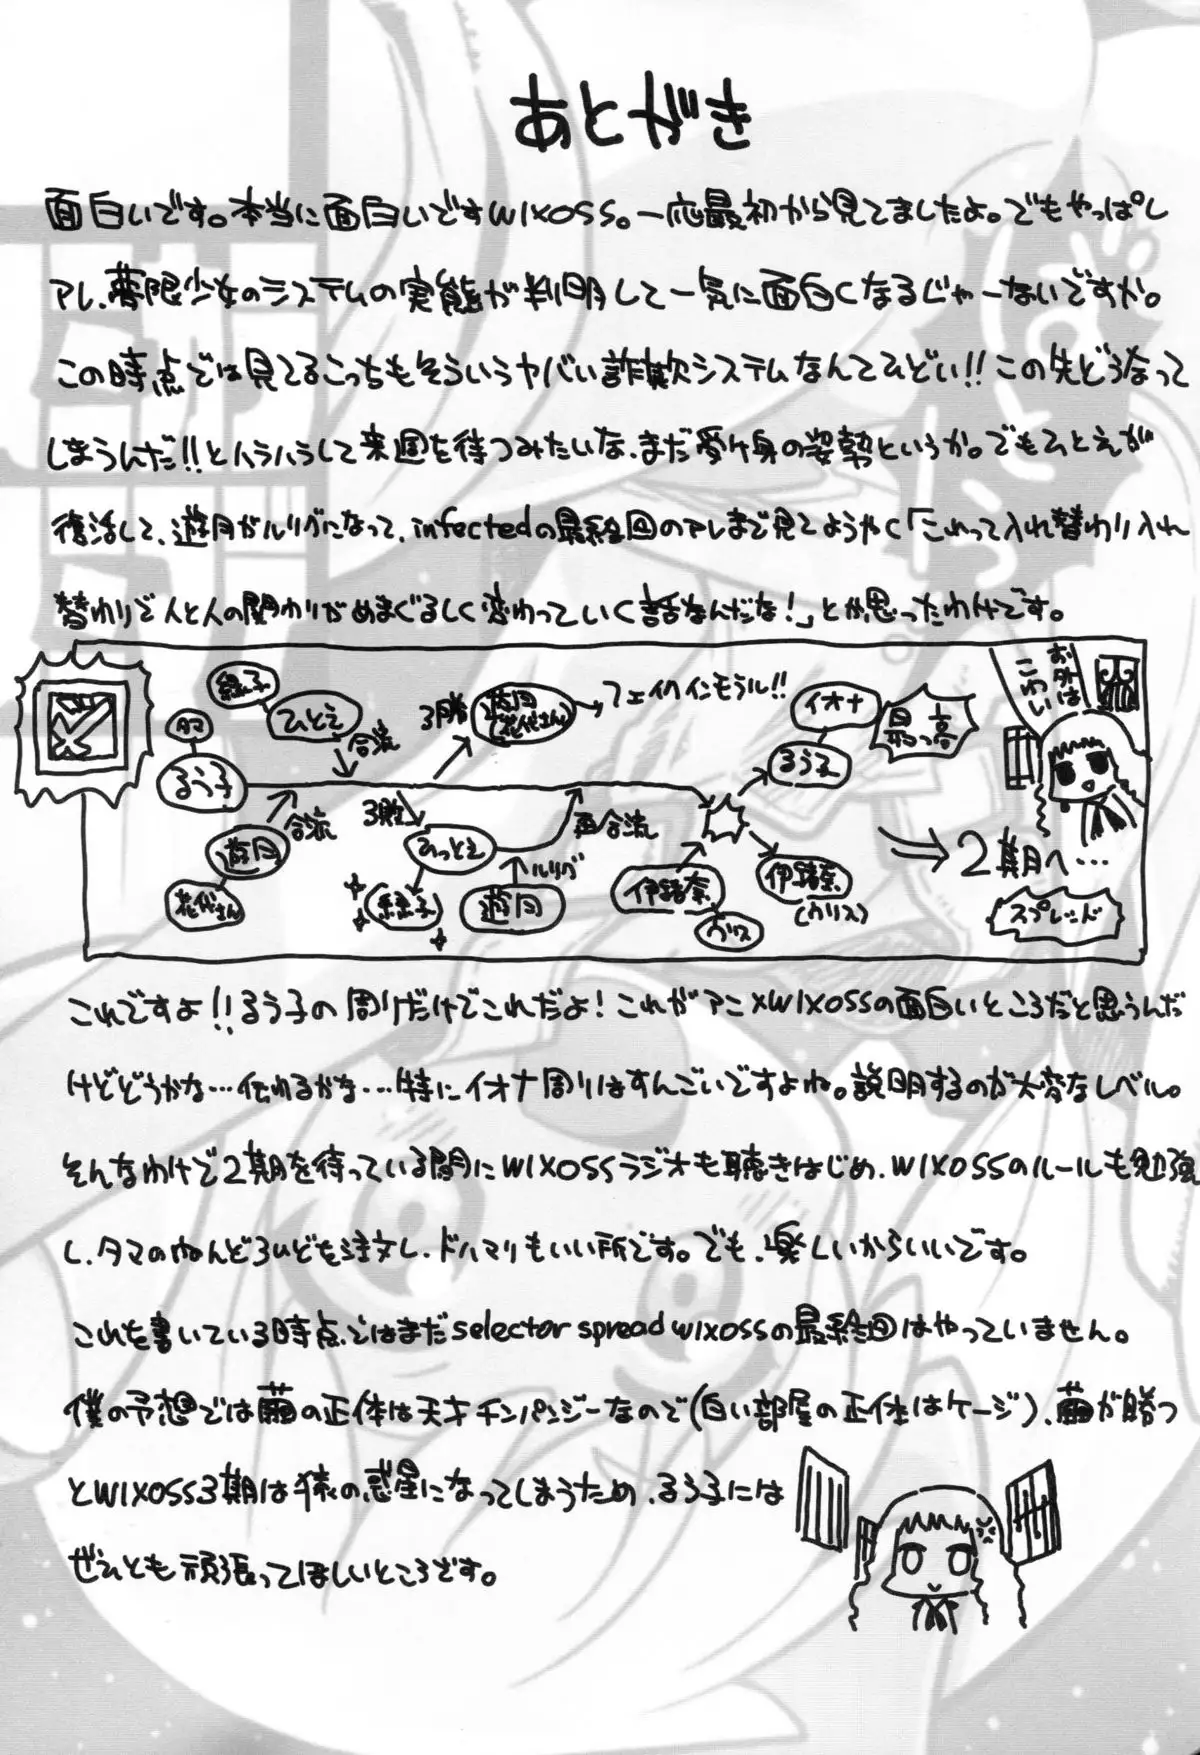 あとがき
面白いです。本当に面白いですWIXOSS。一応最初から見てましたよ。でもやっぱし
アレ、夢限少女のシステムの実態が判明して一気に面白くなるじゃーないですか。
この時点では見てるこっちもそういうヤバい詐欺システムなんてひどい!!この先どうなって
しまうんだ!!とハラハラして来週を待つみたいな、まだ受け身の姿勢というか。でもひとえが
復活して、遊月がルリグになって、infectedの最終回のアレまで見てようやく「これって入れ替わり入れ
替わりで人と人の関わりがめまぐるしく変わっていく話なんだな!」とか思ったわけです。
タマ
るう子
緑子
ひとえ
合流
遊月
花代さん
合流
3勝
遊月
(花代さん)
フェイクインモラル!!
3敗
ひっとえ
緑子
ルリグ
遊月
再合流
伊緒奈
ウリス
イオナ
るう子
最っ高
伊緒奈
(ウリス)
2期へ…
スプレッド
お外は
こわい
これですよ!!るう子の周りだけでこれだよ!これがアニメWIXOSSの面白いところだと思うんだ
けどどうかな…伝わるかな…特にイオナ周りはすんごいですよね。説明するのが大変なレベル。
そんなわけで2期を待っている間にWIXOSSラジオも聴きはじめ、WIXOSSのルールも勉強
し、タマのねんどろいどを注文し、ドハマリもいい所です。でも、楽しいからいいです。
これを書いている時点ではまだselector spread wixossの最終回はやっていません。
僕の予想では繭の正体は天才チンパンジーなので(白い部屋の正体はケージ)、繭が勝つ
とWIXOSS3期は猿の惑星になってしまうため、るう子には
ぜひとも頑張ってほしいところです。